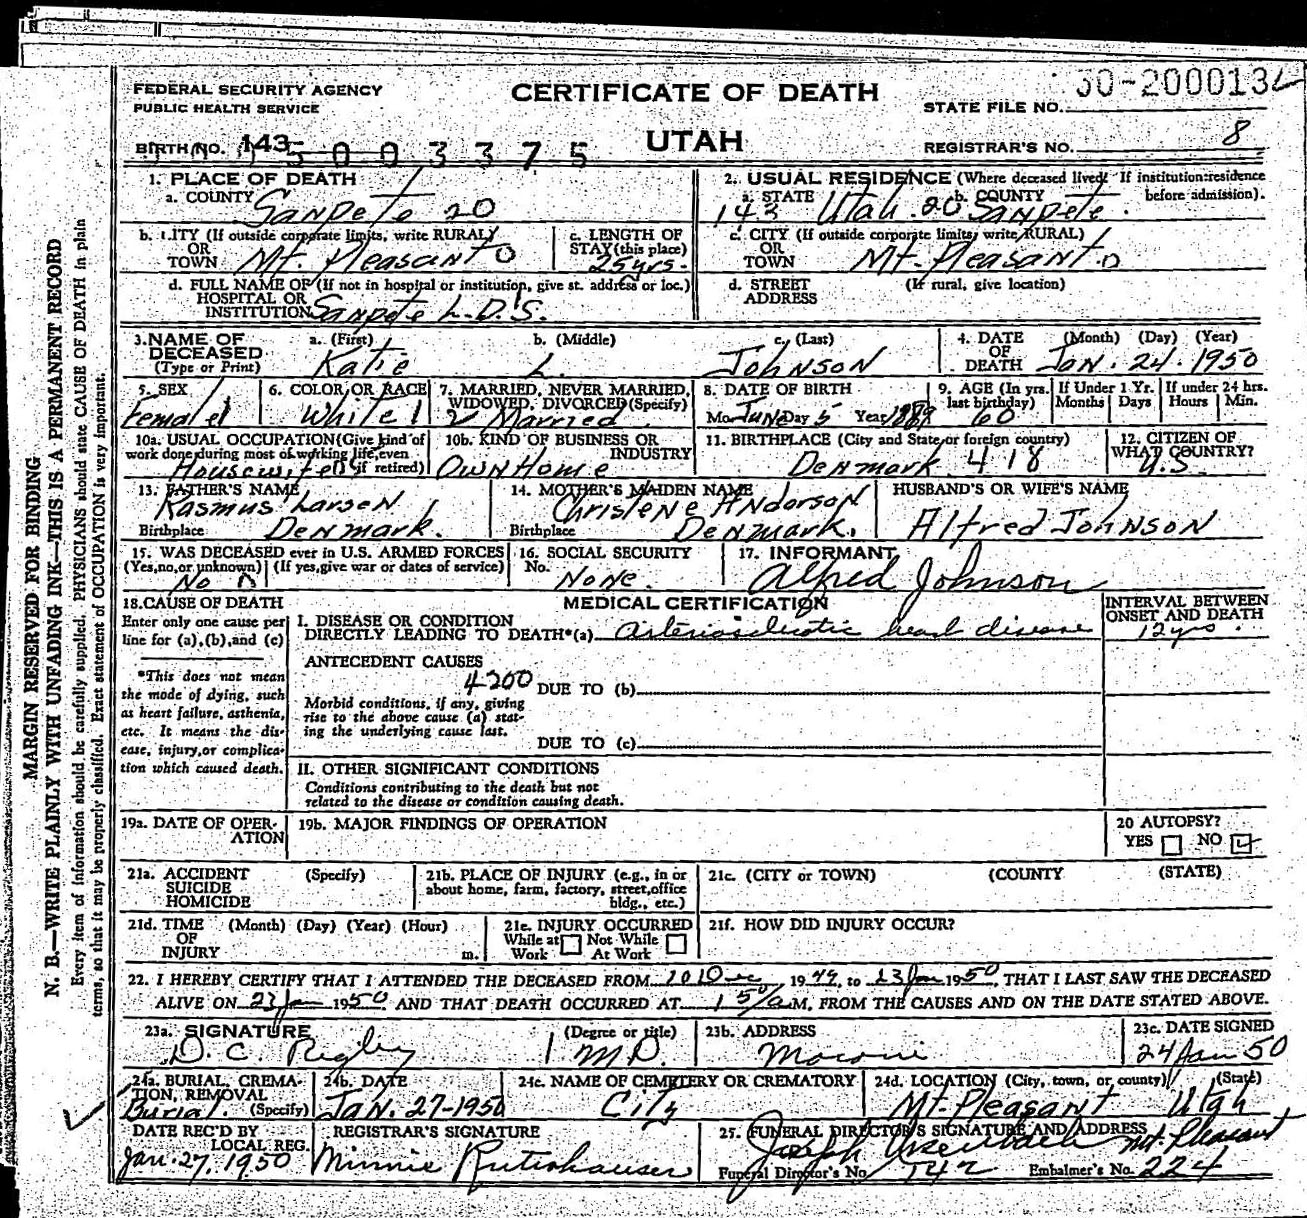 FEDERAL SECURITY AGENCY
PUBLIC HEALTH SERVICE
CERTIFICATE OF DEATH
UTAH
STATE FILE NO.
REGISTRAR'S NO. 8
BIRTH NO. 143
5003375
1. PLACE OF DEATH
a. COUNTY Sanpete 20
2. USUAL RESIDENCE (Where deceased lived. If institution: residence before admission).
a. STATE 143 Utah. b. COUNTY 20 Sanpete.
b. CITY (If outside corporate limits, write RURAL)
OR
TOWN Mt. Pleasant 0
c. LENGTH OF
STAY (this place)
25 yrs.
c. CITY (If outside corporate limits, write RURAL)
OR
TOWN Mt. Pleasant 0
d. FULL NAME OF (If not in hospital or institution, give st. address or loc.)
HOSPITAL OR
INSTITUTION Sanpete L.D.S.
d. STREET
ADDRESS
(If rural, give location)
3. NAME OF
DECEASED
(Type or Print)
a. (First) Katie
b. (Middle) L.
c. (Last) Johnson
4. DATE
OF
DEATH
(Month) (Day) (Year)
Jan. 24. 1950
5. SEX
Female 1
6. COLOR OR RACE
White 1
7. MARRIED, NEVER MARRIED,
WIDOWED, DIVORCED (Specify)
2 Married
8. DATE OF BIRTH
Mo. June Day 5 Year 1889
9. AGE (In yrs.
last birthday)
60
If Under 1 Yr.
Months Days
If under 24 hrs.
Hours Min.
10a. USUAL OCCUPATION (Give kind of
work done during most of working life, even
if retired)
Housewife
10b. KIND OF BUSINESS OR
INDUSTRY
Own Home
11. BIRTHPLACE (City and State, or foreign country)
Denmark 418
12. CITIZEN OF
WHAT COUNTRY?
U.S.
13. FATHER'S NAME
Rasmus Larsen
Birthplace Denmark.
14. MOTHER'S MAIDEN NAME
Christene Anderson
Birthplace Denmark.
HUSBAND'S OR WIFE'S NAME
Alfred Johnson
15. WAS DECEASED ever in U.S. ARMED FORCES
(Yes, no, or unknown) (If yes, give war or dates of service)
No
16. SOCIAL SECURITY
No.
None.
17. INFORMANT
Alfred Johnson
18. CAUSE OF DEATH
Enter only one cause per
line for (a), (b), and (c)
*This does not mean
the mode of dying, such
as heart failure, asthenia,
etc. It means the dis-
ease, injury, or complica-
tion which caused death.
MEDICAL CERTIFICATION
I. DISEASE OR CONDITION
DIRECTLY LEADING TO DEATH*(a) arteriosclerotic heart disease
INTERVAL BETWEEN
ONSET AND DEATH
12 yrs.
ANTECEDENT CAUSES
4200
DUE TO (b)
Morbid conditions, if any, giving
rise to the above cause (a) stat-
ing the underlying cause last.
DUE TO (c)
II. OTHER SIGNIFICANT CONDITIONS
Conditions contributing to the death but not
related to the disease or condition causing death.
19a. DATE OF OPER-
ATION
19b. MAJOR FINDINGS OF OPERATION
20 AUTOPSY?
YES NO
21a. ACCIDENT
SUICIDE
HOMICIDE
(Specify)
21b. PLACE OF INJURY (e.g., in or
about home, farm, factory, street, office
bldg., etc.)
21c. (CITY or TOWN) (COUNTY (STATE)
21d. TIME
OF
INJURY
(Month) (Day) (Year) (Hour)
m.
21e. INJURY OCCURRED
While at Work Not While At Work
21f. HOW DID INJURY OCCUR?
22. I HEREBY CERTIFY THAT I ATTENDED THE DECEASED FROM 10 Dec 1949, to 23 Jan 1950, THAT I LAST SAW THE DECEASED
ALIVE ON 23 Jan 1950, AND THAT DEATH OCCURRED AT M, FROM THE CAUSES AND ON THE DATE STATED ABOVE.
23a. SIGNATURE
D. C. Rigby
(Degree or title)
M.D.
23b. ADDRESS
Moroni
23c. DATE SIGNED
24 Jan 50
24a. BURIAL, CREMA-
TION, REMOVAL
Burial. (Specify)
24b. DATE
Jan. 27-1950
24c. NAME OF CEMETERY OR CREMATORY
City
24d. LOCATION (City, town, or county) (State)
Mt. Pleasant Utah
DATE REC'D BY
LOCAL REG.
Jan. 27, 1950
REGISTRAR'S SIGNATURE
Minnie
25. FUNERAL DIRECTOR'S SIGNATURE AND ADDRESS
Joseph Mt. Pleasant
Funeral Director's No. 542 Embalmer's No. 224
MARGIN RESERVED FOR BINDING
N. B.—WRITE PLAINLY WITH UNFADING INK—THIS IS A PERMANENT RECORD
Every item of information should be carefully supplied. PHYSICIANS should state CAUSE OF DEATH in plain
terms, so that it may be properly classified. Exact statement of OCCUPATION is very important.